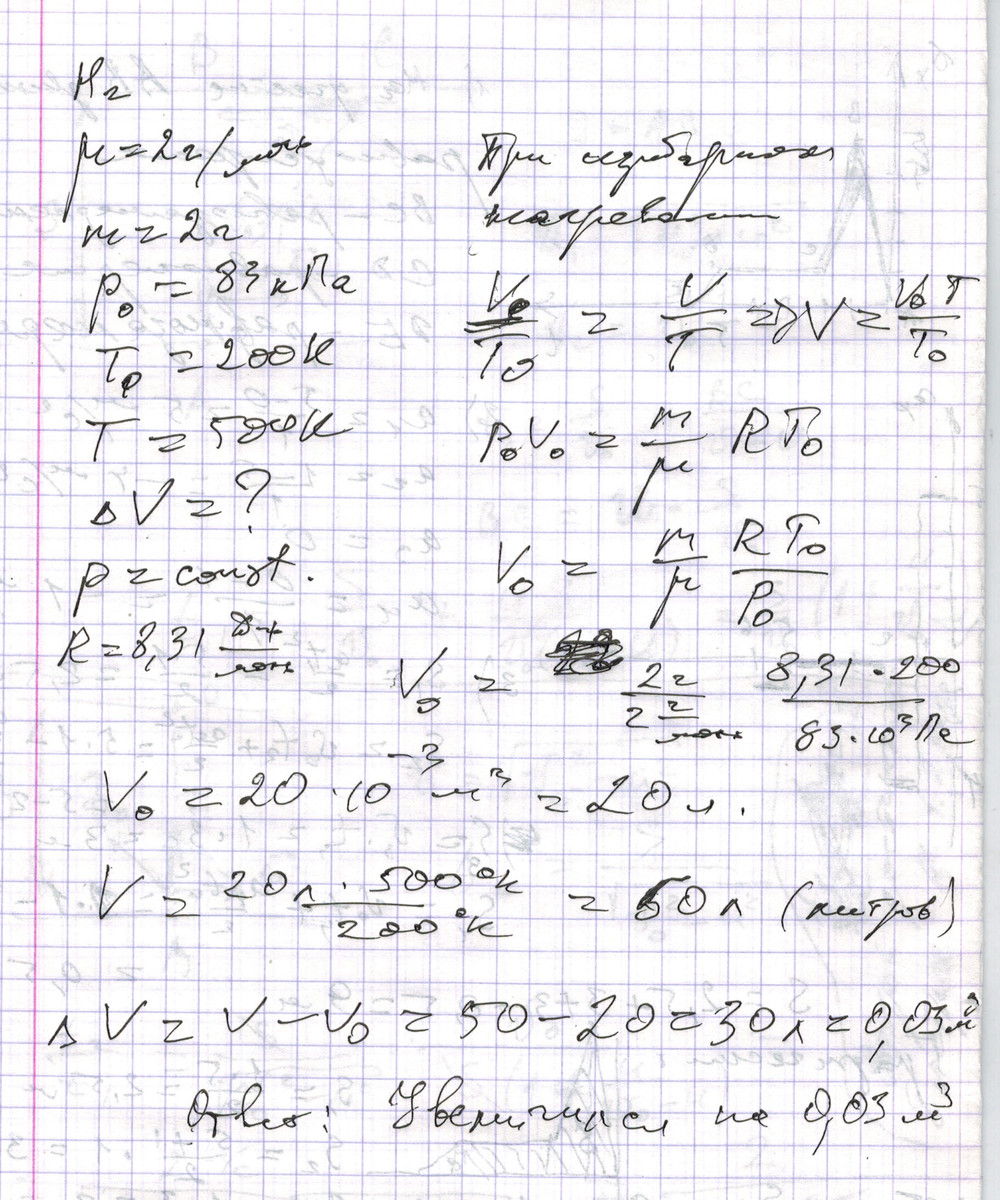 H₂
μ = 2г/моль
m = 2г
p₀ = 83 кПа
T₀ = 200К
T = 500К
ΔV = ?
p = const.
R = 8,31 Дж/моль
При изобарном
нагревании
V₀/T₀ = V/T => V = V₀T/T₀
P₀V₀ = m/μ RT₀
V₀ = m/μ RT₀/P₀
V₀ = 2г/2 г/моль 8,31·200/83·10³Па
V₀ = 20·10⁻³м³ = 20л.
V = 20л·500°К/200°К = 50л (литров)
ΔV = V - V₀ = 50 - 20 = 30л = 0,03м³
Ответ: Увеличился на 0,03м³